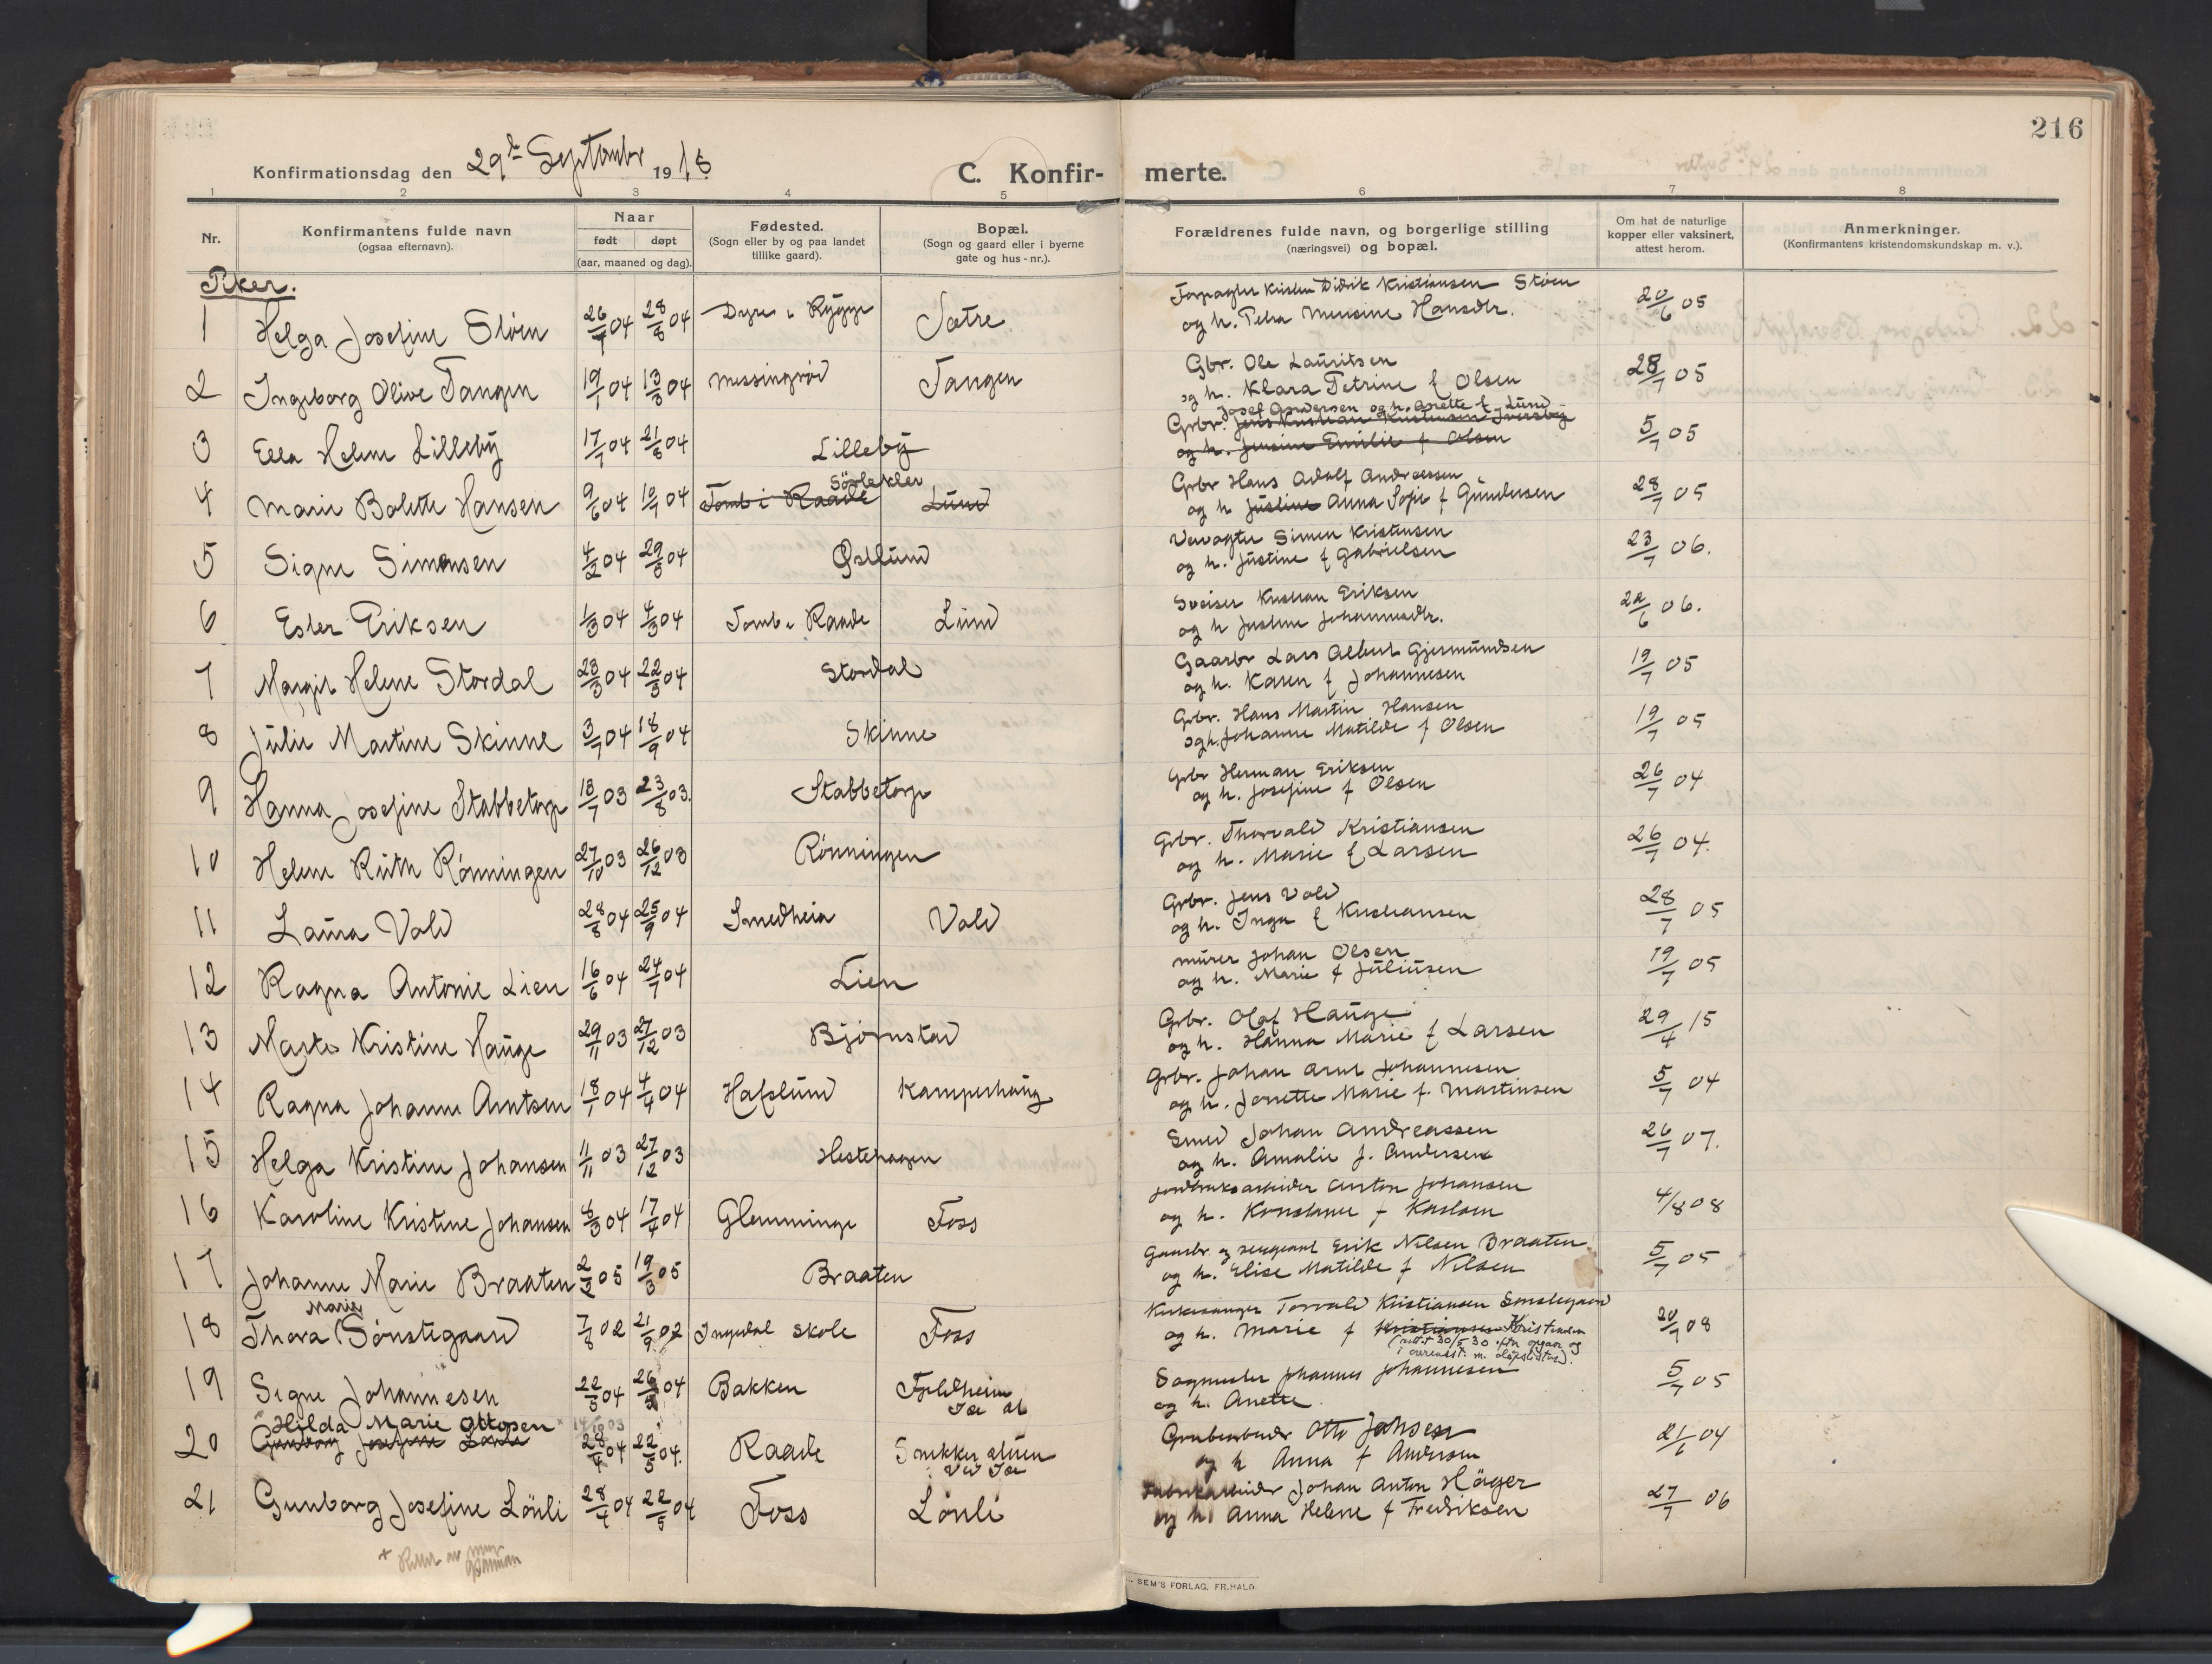 216
Konfirmationsdag den 29de September 1918
C. Konfir- merte.
1 2 3 4 5 6 7 8
Nr.
Konfirmantens fulde navn
(ogsaa efternavn).
Naar
født døpt
(aar, maaned og dag).
Fødested.
(Sogn eller by og paa landet
tillike gaard).
Bopæl.
(Sogn og gaard eller i byerne
gate og hus-nr.).
Forældrenes fulde navn, og borgerlige stilling
(næringsvei) og bopæl.
Om hat de naturlige
kopper eller vaksinert,
attest herom.
Anmerkninger.
(Konfirmantens kristendomskundskap m. v.).
Piker.
1 Helga Josefine Støen 26/7 04 28/8 04 Dyre i Rygge Sætre
Forpagter Kristen Didrik Kristiansen Støen
og h. Petra Mensine Hansdtr. 20/6 05
2 Ingeborg Olive Tangen 19/1 04 13/3 04 Messingrød Tangen
Gbr. Ole Lauritsen
og h. Klara Petrine f Olsen 28/7 05
3 Ella Helene Lilleby 17/7 04 21/8 04 Lilleby
Josef Andersen og h. Anette f. Lund
Grbr. Jens Kristian Kristiansen Iversby
og h. Jensine Emilie f Olsen 5/7 05
4 Marie Bolette Hansen 9/6 04 10/7 04 Tomb i Raade Sørlekler Lund
Grbr Hans Adolf Andreassen
og h Justine Anna Sofie f Gundersen 28/7 05
5 Signe Simensen 4/2 04 29/5 04 Østlund
Vevagter Simen Kristensen
og h. Justine f Gabrielsen 23/7 06.
6 Ester Eriksen 1/3 04 4/3 04 Tomb i Raade Lund
Sveiser Kristian Eriksen
og h Justine Johannesdtr. 06.
7 Margit Helene Stordal 23/3 04 22/5 04 Stordal
Gaarbr Lars Albert Gjermundsen
og h. Karen f Johannesen 19/7 05
8 Julie Martine Skinne 3/7 04 18/9 04 Skinne
Grbr. Hans Martin Hansen
og h. Johanne Matilde f Olsen 19/7 05
9 Hanna Josefine Stabbetorp 13/7 03 23/8 03. Stabbetorp
Grbr Herman Eriksen
og h. Josefine f Olsen 26/7 04
10 Helene Ruth Rønningen 27/10 03 26/12 03 Rønningen
Grbr. Thorvald Kristiansen
og h. Marie f Larsen 26/7 04.
11 Laura Vold 28/8 04 25/9 04 Smedheia Vold
Grbr. Jens Vold
og h. Inga f Kristiansen 28/7 05
12 Ragna Antonie Lien 16/6 04 24/7 04 Lien
murer Johan Olsen
og h. Marie f Juliusen 19/7 05
13 Marte Kristine Hauge 29/11 03 27/12 03 Bjørnstad
Grbr. Olaf Hauge
og h. Hanna Marie f Larsen 29/4 15
14 Ragna Johanne Arntsen 18/1 04 4/4 04 Hafslund Kamperhaug
Grbr. Johan Arnt Johannesen
og h. Jonette Marie f. Martinsen 5/7 04
15 Helga Kristine Johansen 11/11 03 27/12 03 Hestehagen
Smed Johan Andreassen
og h. Amalie f. Andersen 26/7 07.
16 Karoline Kristine Johansen 6/3 04 17/4 04 Glemminge Foss
Jordbruksarbeider Anton Johansen
og h. Konstanse f Karlsen 4/8 08
17 Johanne Marie Braaten 2/2 05 19/3 05 Braaten
Gaarbr. og sergeant Erik Nilsen Braaten
og h. Elise Matilde f Nilsen 5/7 05
Marie
18 Thora Sønstegaard 7/8 02 21/9 02 Ingedal skole Foss
Kirkesanger Torvald Kristiansen Sønstegaard
og h. Marie f Kristiansen Kristensen 20/7 08
(rettet 30/5 30 efter opgave og
i overensst. m. dåpslisten).
19 Signe Johannesen 22/3 04 04 Bakken Fjeldheim
Ise st
Sagmester Johannes Johannesen
og h. Anette. 5/7 05
Hilda Marie Ottosen × 03
20 Gunborg Josefine Lønli 28/4 04 22/5 04. Raade Snekker stuen
ved Ise
Grubearbeider Otto Jansen
og h Anna f Andersen 21/6 04
21 Gunborg Josefine Lønli 28/4 04 22/5 04 Foss Lønli
Fabrikarbeider Johan Anton Häger
og h. Anna Helene f Fredriksen 27/7 06
SEM'S FORLAG, FR.HALD